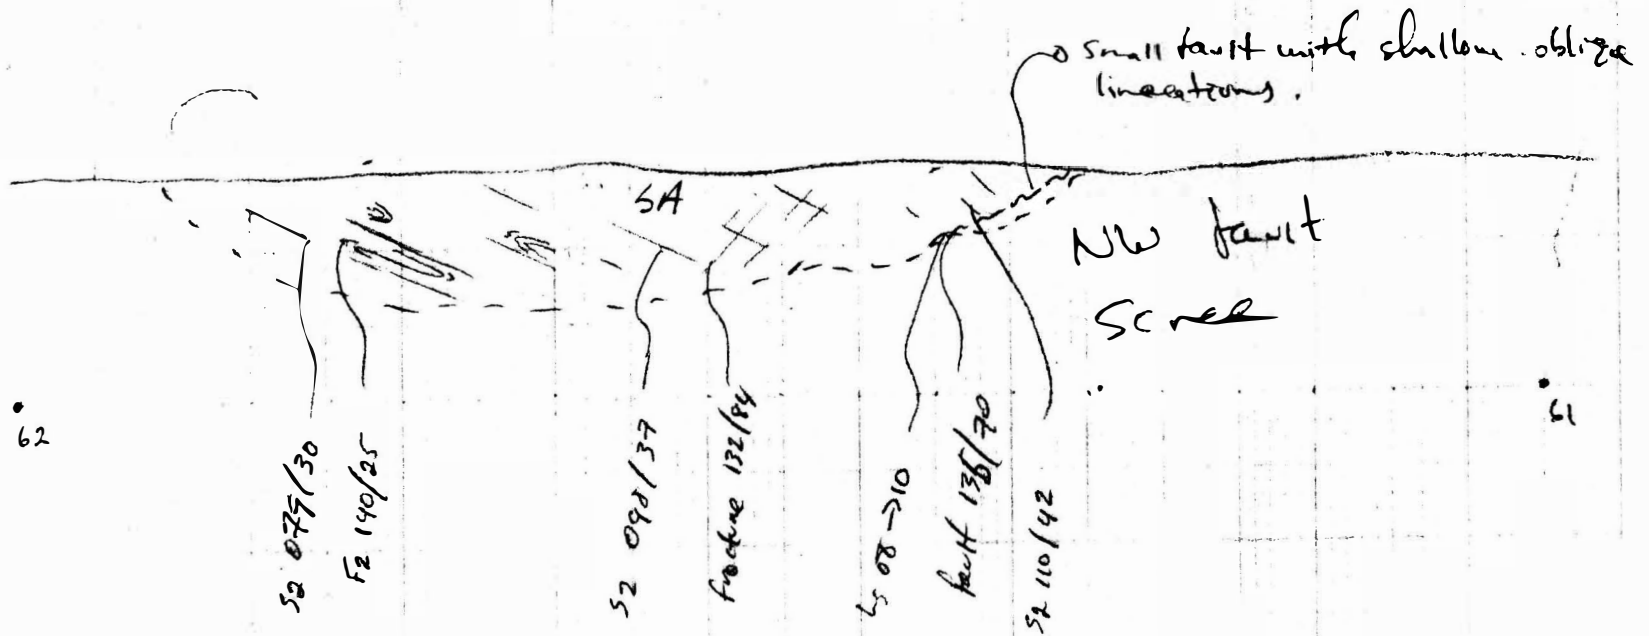 Small fault with shallow oblique
lineations.
SA
NW fault
Scree
62
61
S2 075/30
F2 140/25
S2 098/37
fracture 132/84
08→10
fault 135/70
S2 110/42